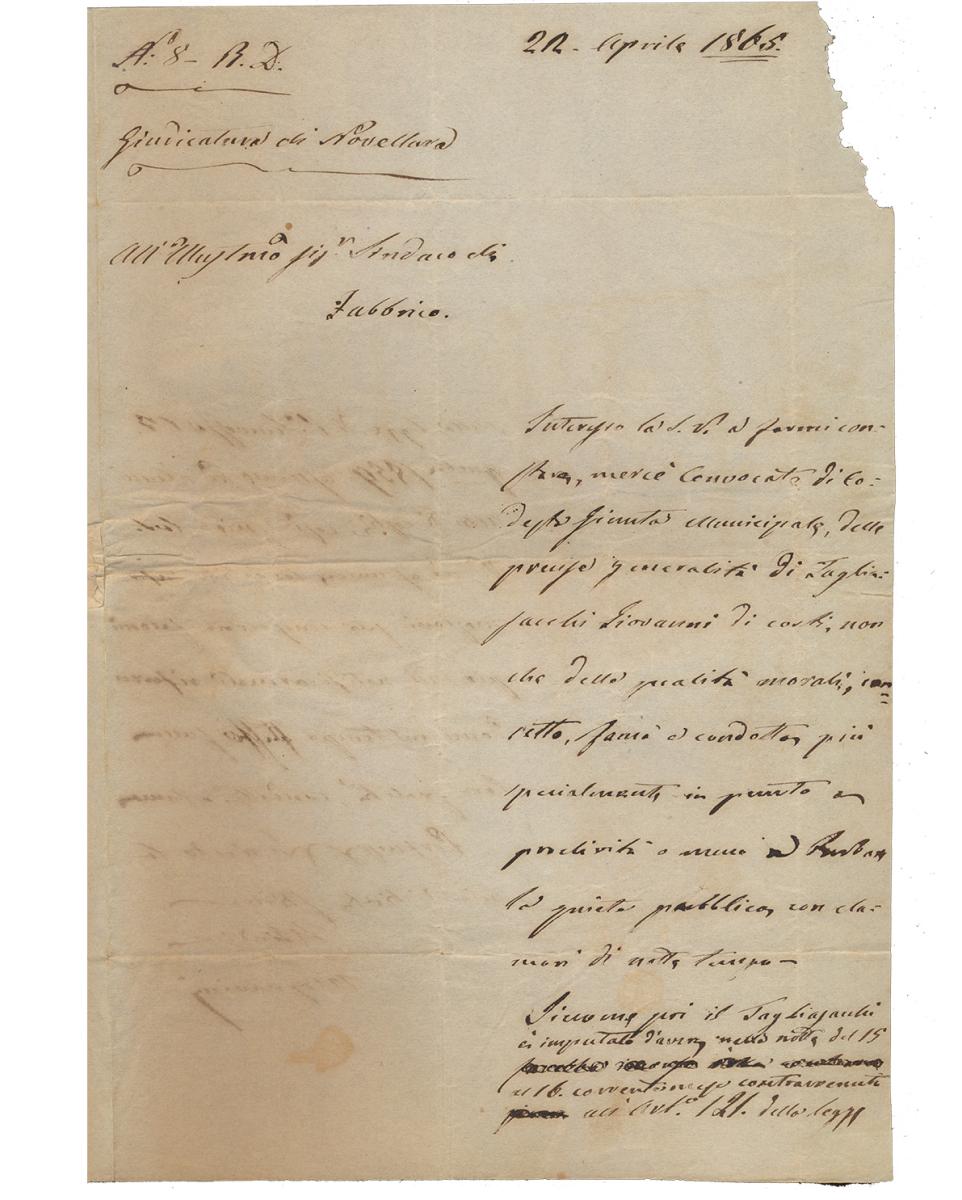 N.° 8 - R. D.
22 - Aprile 1865.
Giudicatura di Novellara
All'Illustrmo sigr Sindaco di
Fabbrico.
Interesso la S. V. a farmi con-
stare, mercè Convocato di Co-
desta Giunta Municipale, delle
precise generalità di Taglia-
sacchi Giovanni di costì, non
che delle qualità morali, con-
cetto, fama e condotta, più
specialmente in punto a
proclività o meno a turbare
la quiete pubblica, con cla-
mori di notte tempo -
Siccome poi il Tagliasacchi
è imputato d'aver, nella notte del 15
al 16. corrente mese contravvenuto
all'Art.° 121. della legge